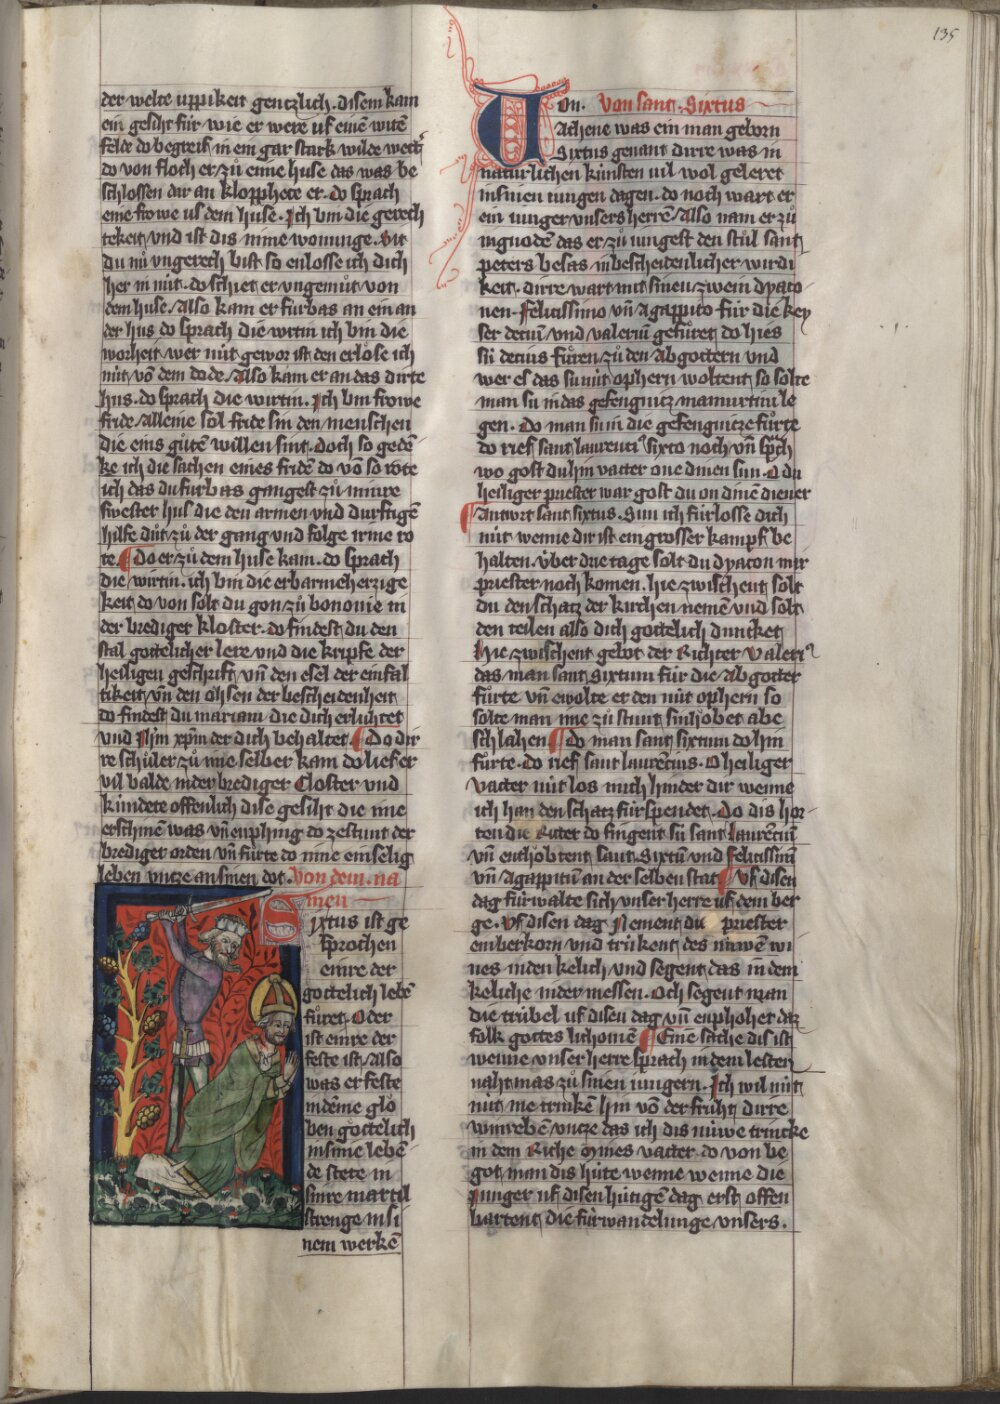 135
der welte uppikeit gentzlich. disem kam
ein gesiht für wie er were uf einē witē
felde do begreif in ein gar stark wilde wett̄
do von floch er zů eime huse das was be
schlossen dar an klopphete er. do sprach
eine frowe us dem huse. Ich bin die gerech
tekeit vnd ist dis mine wonunge. Sit
du nů vngerech bist so enlosse ich dich
her in nüt. do schiet er ungemůt von
dem huse. Also kam er fürbas an ein an
der hus do sprach die wirtin ich bin die
worheit wer nüt gewor ist den erlöse ich
nüt vō dem dode. Also kam er an das dirte
hus. do sprach die wirtin. Ich bin frowe
fride Alleine sol fride sin den menschen
die eins gůtē willen sint. Doch so gedē
ke ich die sachen eines fridē do vō so rote
ich das du furbas gangest zů minre
swester hus die den armen und durftigē
hilfe důt zů der gang vnd folge irme ro
te. Do er zů dem huse kam. do sprach
die wirtin. ich bin die erbarmeherzige
keit do von solt du gon zů bononie in
der brediger kloster. do findest du den
stal gottelicher lere vnd die kripfe der
heiligen geschrift vn̄ den esel der einfal
tikeit vn̄ den ohsen der bescheidenheit
do findest du mariam die dich erlühtet
vnd Jh̄m xp̄m der dich behaltet Do dir
re schůler zů ime selber kam do lief er
vil balde in der brediger Closter vnd
kündete offenlich dise gesiht die ime
erschinē was vn̄ enphing do zestunt der
brediger orden vn̄ fůrte do inne ein selig
leben vntze an sinen dot. Von dem na
men
Sixtus ist ge
sprochen
einre der
gottelich lebē
fůret. Oder
ist einre der
feste ist Also
was er feste
in dēme glo
ben gottelich
in sime lebē
de stete in
sinre martil
strenge in si
nem werkē
on. Von sant. Sixtus
Achene was ein man geborn
Sixtus genant dirre was in
natürlichen künsten vil wol geleret
in sinen iungen dagen. do noch wart er
ein iunger vnsers herrē Also nam er zů
in gnodē das er zů iungest den stůl sant
peters besas in bescheidenlicher wirdi
keit. dirre wart mit sinen zwein dyaco
nen. felicissimo vn̄ Agappito für die key
ser deciū vnd valeriū gefůret do hies
sü decius fůren zů den Abgottern und
wer es das sü nüt ophern woltent so solte
man sü in das gefengnicz mamurtini le
gen. Do man sü in die gefengnicze fůrte
do rief sant laurenciꝰ sixto noch vn̄ sp̄ch
wo gost du hin vatter one dinen sun. O du
heiliger priester war gost du on dinē diener
Antwort sant sixtus. Sun ich fürlosse dich
nüt wenne dir ist ein grosser kampf be
halten. Über drie tage solt du dyacon mir
priester noch komen. hie zwischent solt
du den schatz der kirchen nemē vnd solt
den teilen also dich gottelich duncket
Hie zwischent gebot der Richter Valeriꝰ
das man sant Sixtum für die Abgötter
fůrte vn̄ ewolte er den nüt ophern so
solte man ime zů stunt sin hobet abe
schlahen Do man sant sixtum do hin
fůrte. do rief sant laurēcius. O heiliger
vatter nüt los mich hinder dir wenne
ich han den schatz fürspendet. Do dis hor
ten die Ritter do fingent sü sant laurēciū
vn̄ enthobtent sant. Sixtū vnd felicissimū
vn̄ Agappitū an der selben stat Uf disen
dag fürwalte sich vnser herre uf dem ber
ge. Uf disen dag Nement du priester
ein berkorn vnd trükent des nüwē wi
nes in den kelich vnd segent das in dem
keliche in der messen. Och segent man
die trübel uf disen dag vn̄ enphohet daz
folk gottes lichomē Eine sache dis ist
wenne vnser herre sprach in dem lesten
naht mas zů sinen iungern. Ich wil nüt
nüt me trinkē hin vō der fruht dirre
winrebē vntze das ich dis nüwe trincke
in dem Riche mines vatter. do von be
got man dis hüte wenne wenne die
Junger uf disen hütigē dag erst offen
bartent die fürwandelunge vnsers.